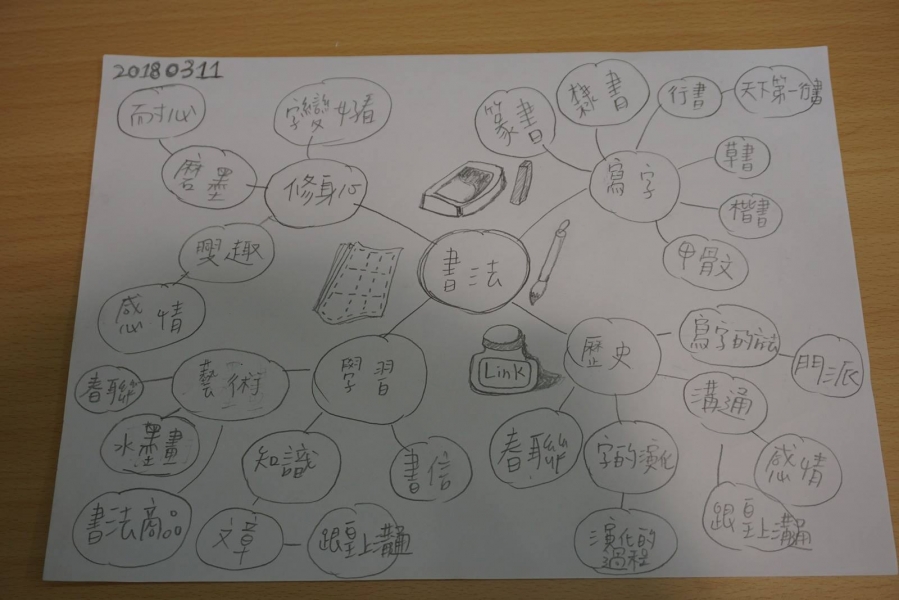 20180311
書法
修身心
字變好看
磨墨
耐心
興趣
感情
寫字
篆書
隸書
行書
天下第一行書
草書
楷書
甲骨文
歷史
寫字的方法
門派
溝通
感情
跟皇上溝通
字的演化
演化的
過程
春聯
學習
藝術
春聯
水墨畫
書法商品
知識
文章
跟皇上溝通
書信
Link